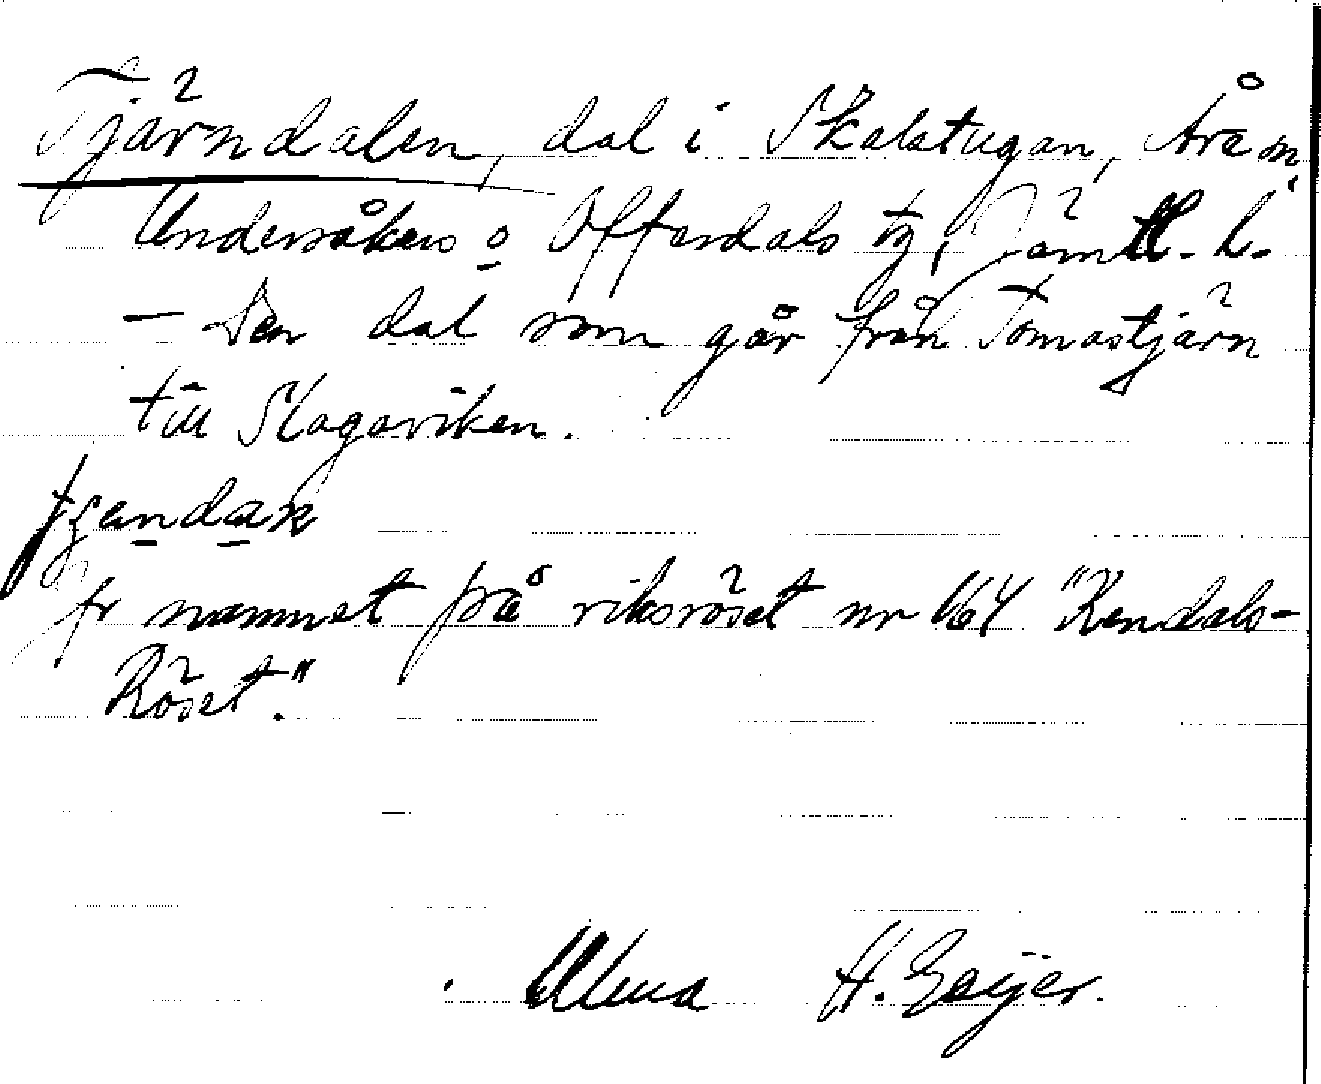 Tjärndalen, dal i Skalstugan, Åre sn,
Undersåkers o Offerdals tg, Jämtl. l.
– Den dal som går från Tomastjärn
till Skagaviken.
jfr namnet på riksröset nr 164 "Kendals-
Röset."
Ullma H. Geijer.